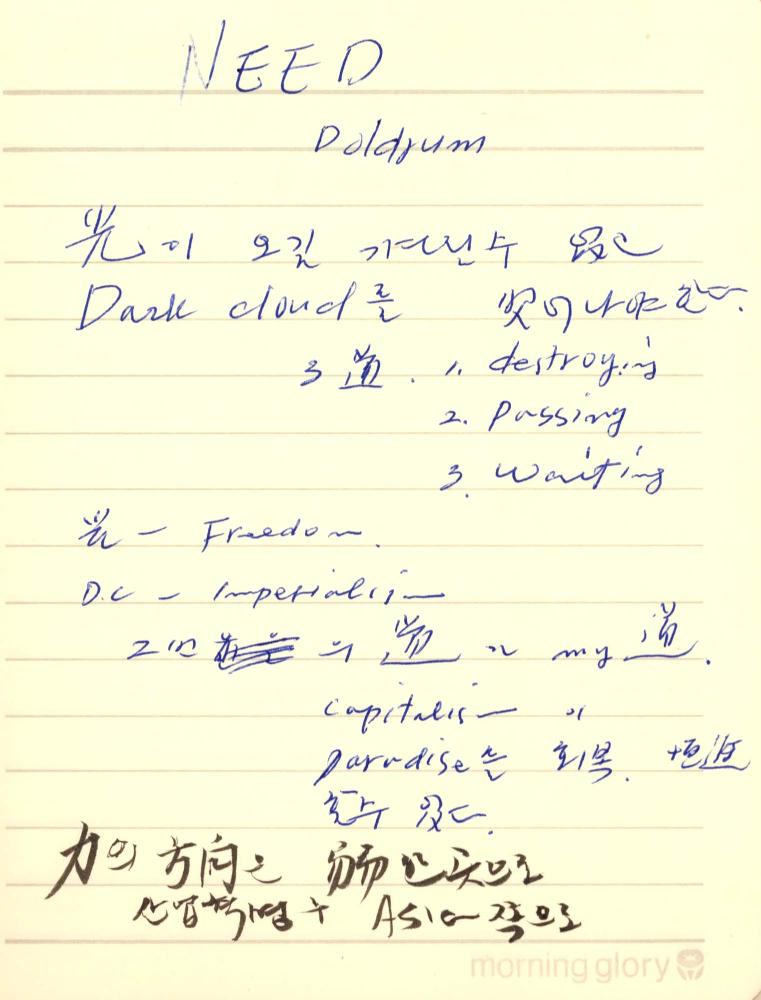 NEED
Doldrum
光이 오길 기다릴 수 없고
Dark cloud를 벗어나야 한다.
3 道. 1. destroying
2. Passing
3. Waiting
光 - Freedom.
D.C - Imperialism
2번 의 道가 my 道.
Capitalism이
paradise를 회복.
할 수 있다.
力의 方向은 으로
산업혁명 후 Asia 쪽으로
morning glory